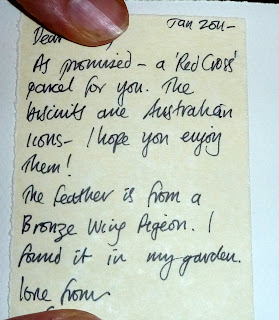 Jan 2011-
Dear
As promised - a 'Red Cross'
parcel for you. The
biscuits are Australian
Icons - I hope you enjoy
them!
The feather is from a
Bronze Wing Pigeon. I
found it in my garden.
love from